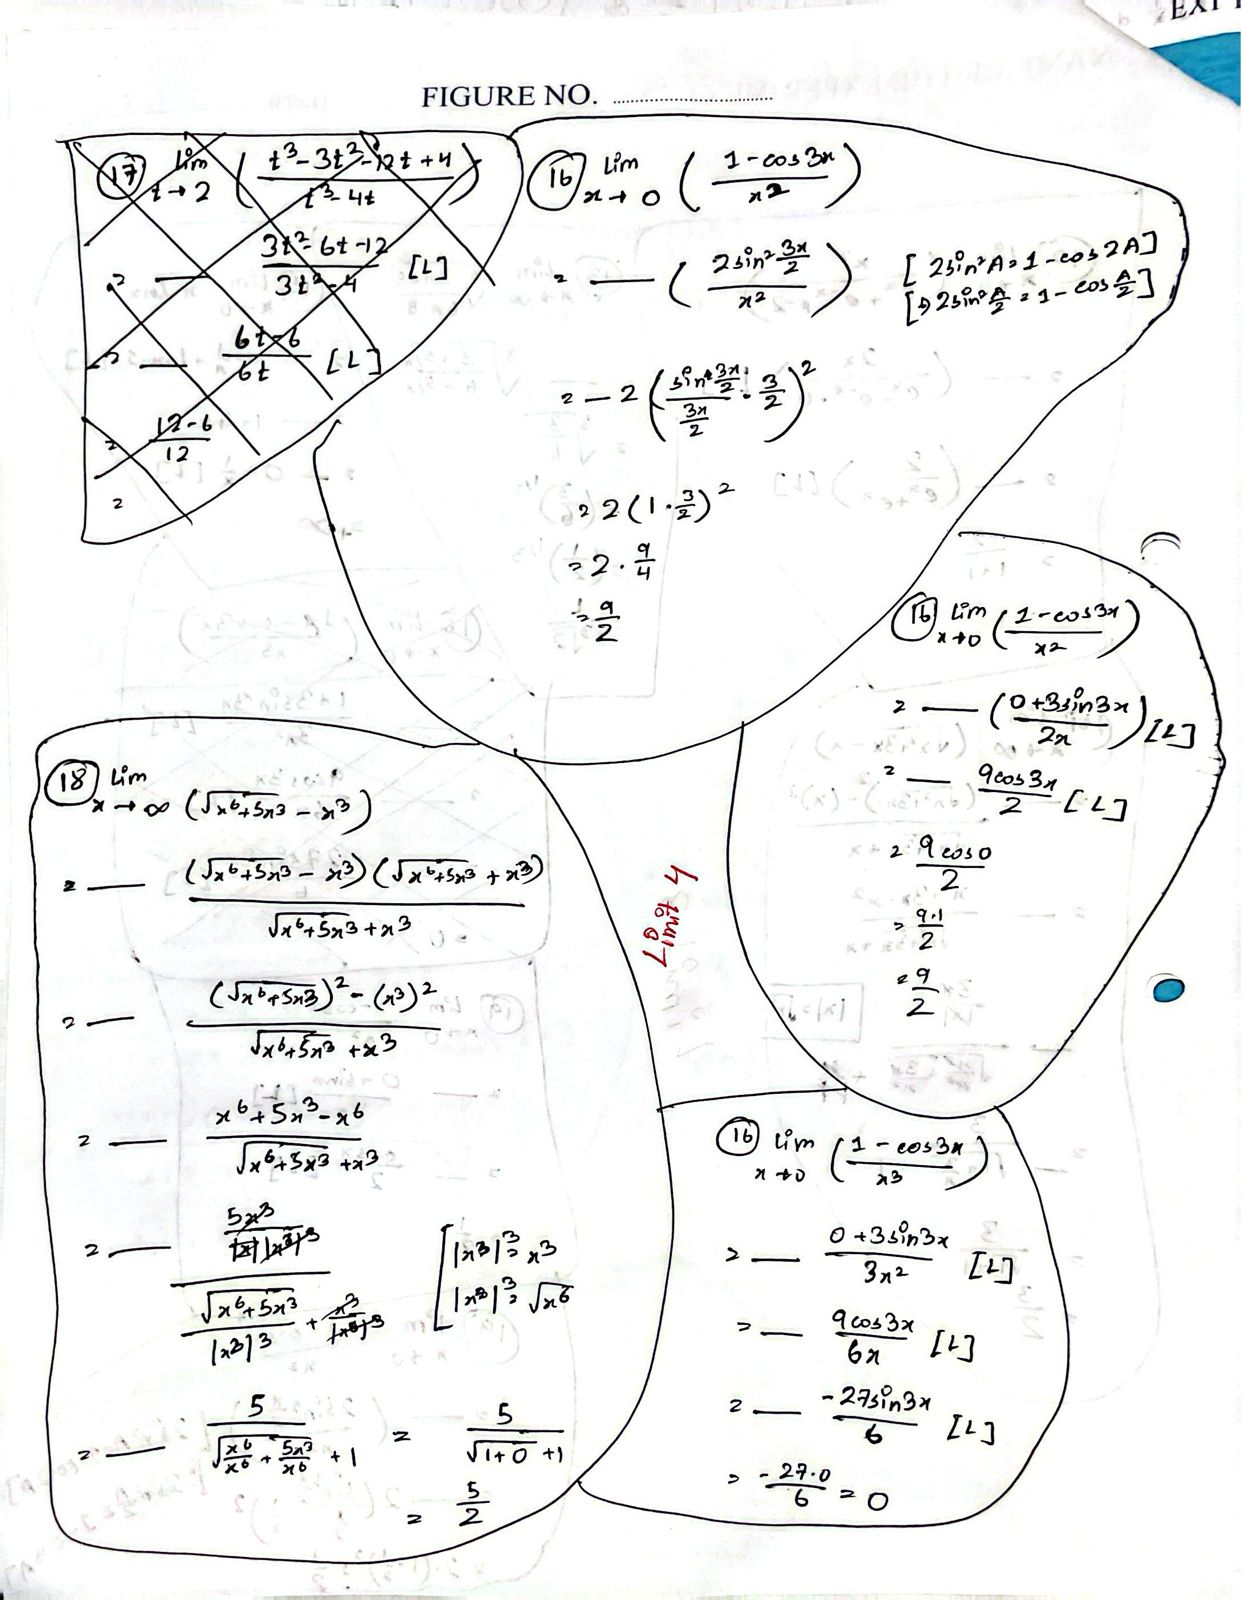 EXPT
FIGURE NO. ....................
(17) lim t→2 ( (t³ - 3t² - 12t + 4) / (t³ - 4t) )
= — (3t² - 6t - 12) / (3t² - 4) [L]
= — (6t - 6) / 6t [L]
= (12 - 6) / 12
=
(16) lim x→0 ( (1 - cos3x) / x² )
= — ( 2sin² (3x/2) / x² ) [2sin²A = 1 - cos2A]
[⇒ 2sin² A/2 = 1 - cos A/2]
= — 2 ( (sin (3x/2)) / (3x/2) · 3/2 )²
= 2 (1 · 3/2)²
= 2 · 9/4
= 9/2
(16) lim x→0 ( (1 - cos3x) / x² )
= — ( (0 + 3sin3x) / 2x ) [L]
= — 9cos3x / 2 [L]
= 9cos0 / 2
= 9·1 / 2
= 9/2
(18) lim x→∞ (√(x⁶+5x³) - x³)
= — (√(x⁶+5x³) - x³) (√(x⁶+5x³) + x³) / (√(x⁶+5x³) + x³)
= — ((√(x⁶+5x³))² - (x³)²) / (√(x⁶+5x³) + x³)
= — (x⁶ + 5x³ - x⁶) / (√(x⁶+5x³) + x³)
= — (5x³ / |x³|³) / (√(x⁶+5x³) / |x³|³ + x³ / |x³|³) [ |x³|³ = x³
|x³|³ = √x⁶
= — 5 / (√(x⁶/x⁶ + 5x³/x⁶) + 1) = 5 / (√(1+0) + 1)
= 5/2
Limit 4
(16) lim x→0 ( (1 - cos3x) / x³ )
= — (0 + 3sin3x) / 3x² [L]
= — 9cos3x / 6x [L]
= — -27sin3x / 6 [L]
= -27·0 / 6 = 0